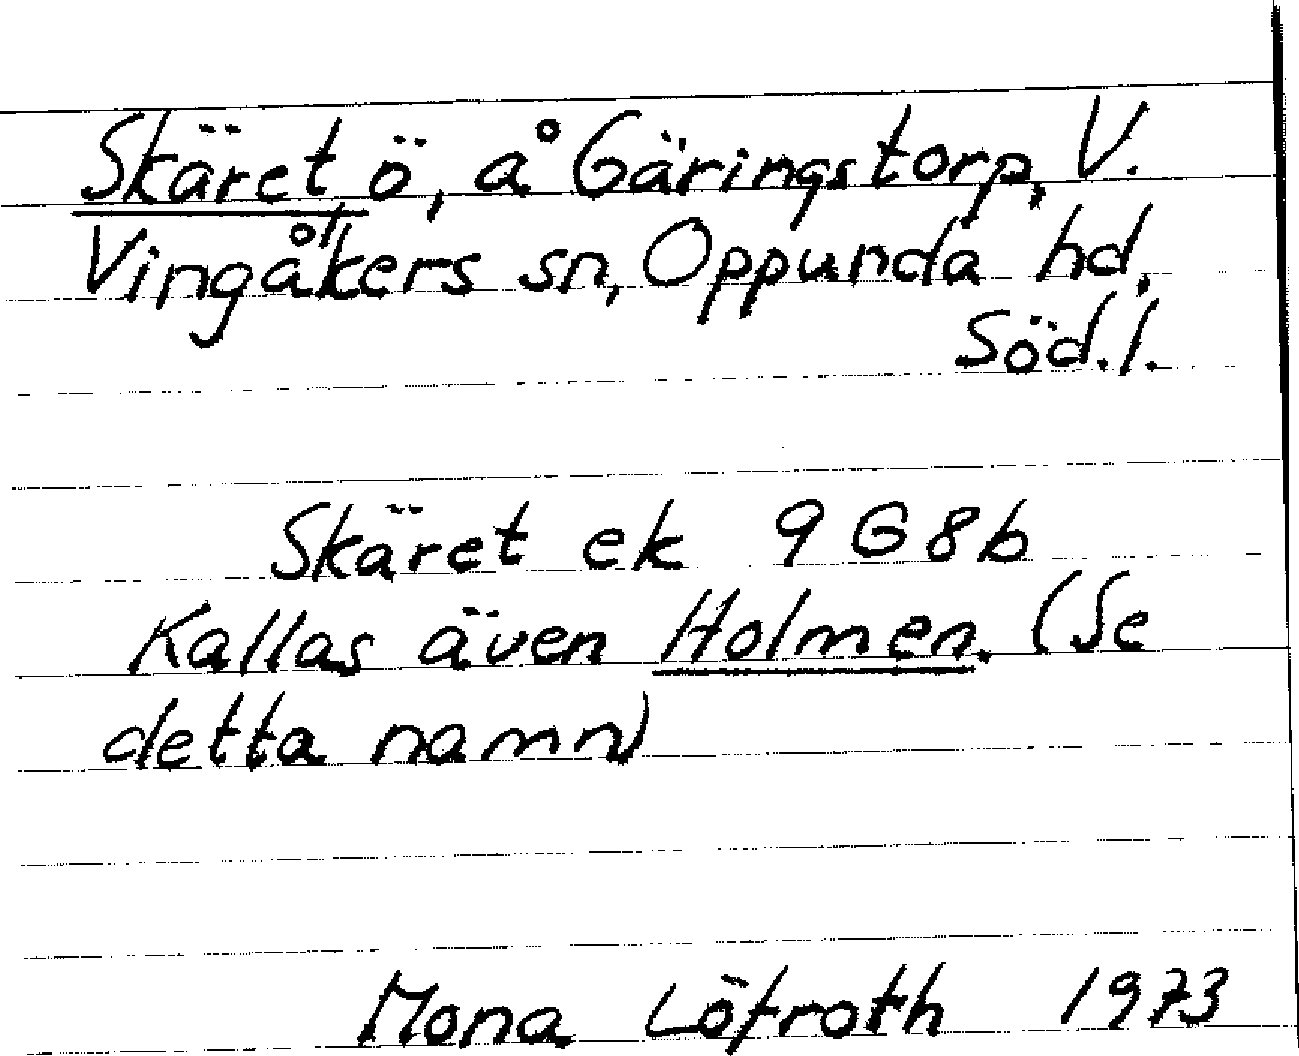 Skäret ö, å Gäringstorp, V.
Vingåkers sn, Oppunda hd,
Söd.l.
Skäret ek 9G8b
Kallas även Holmen. (Se
detta namn)
Mona Löfroth 1973